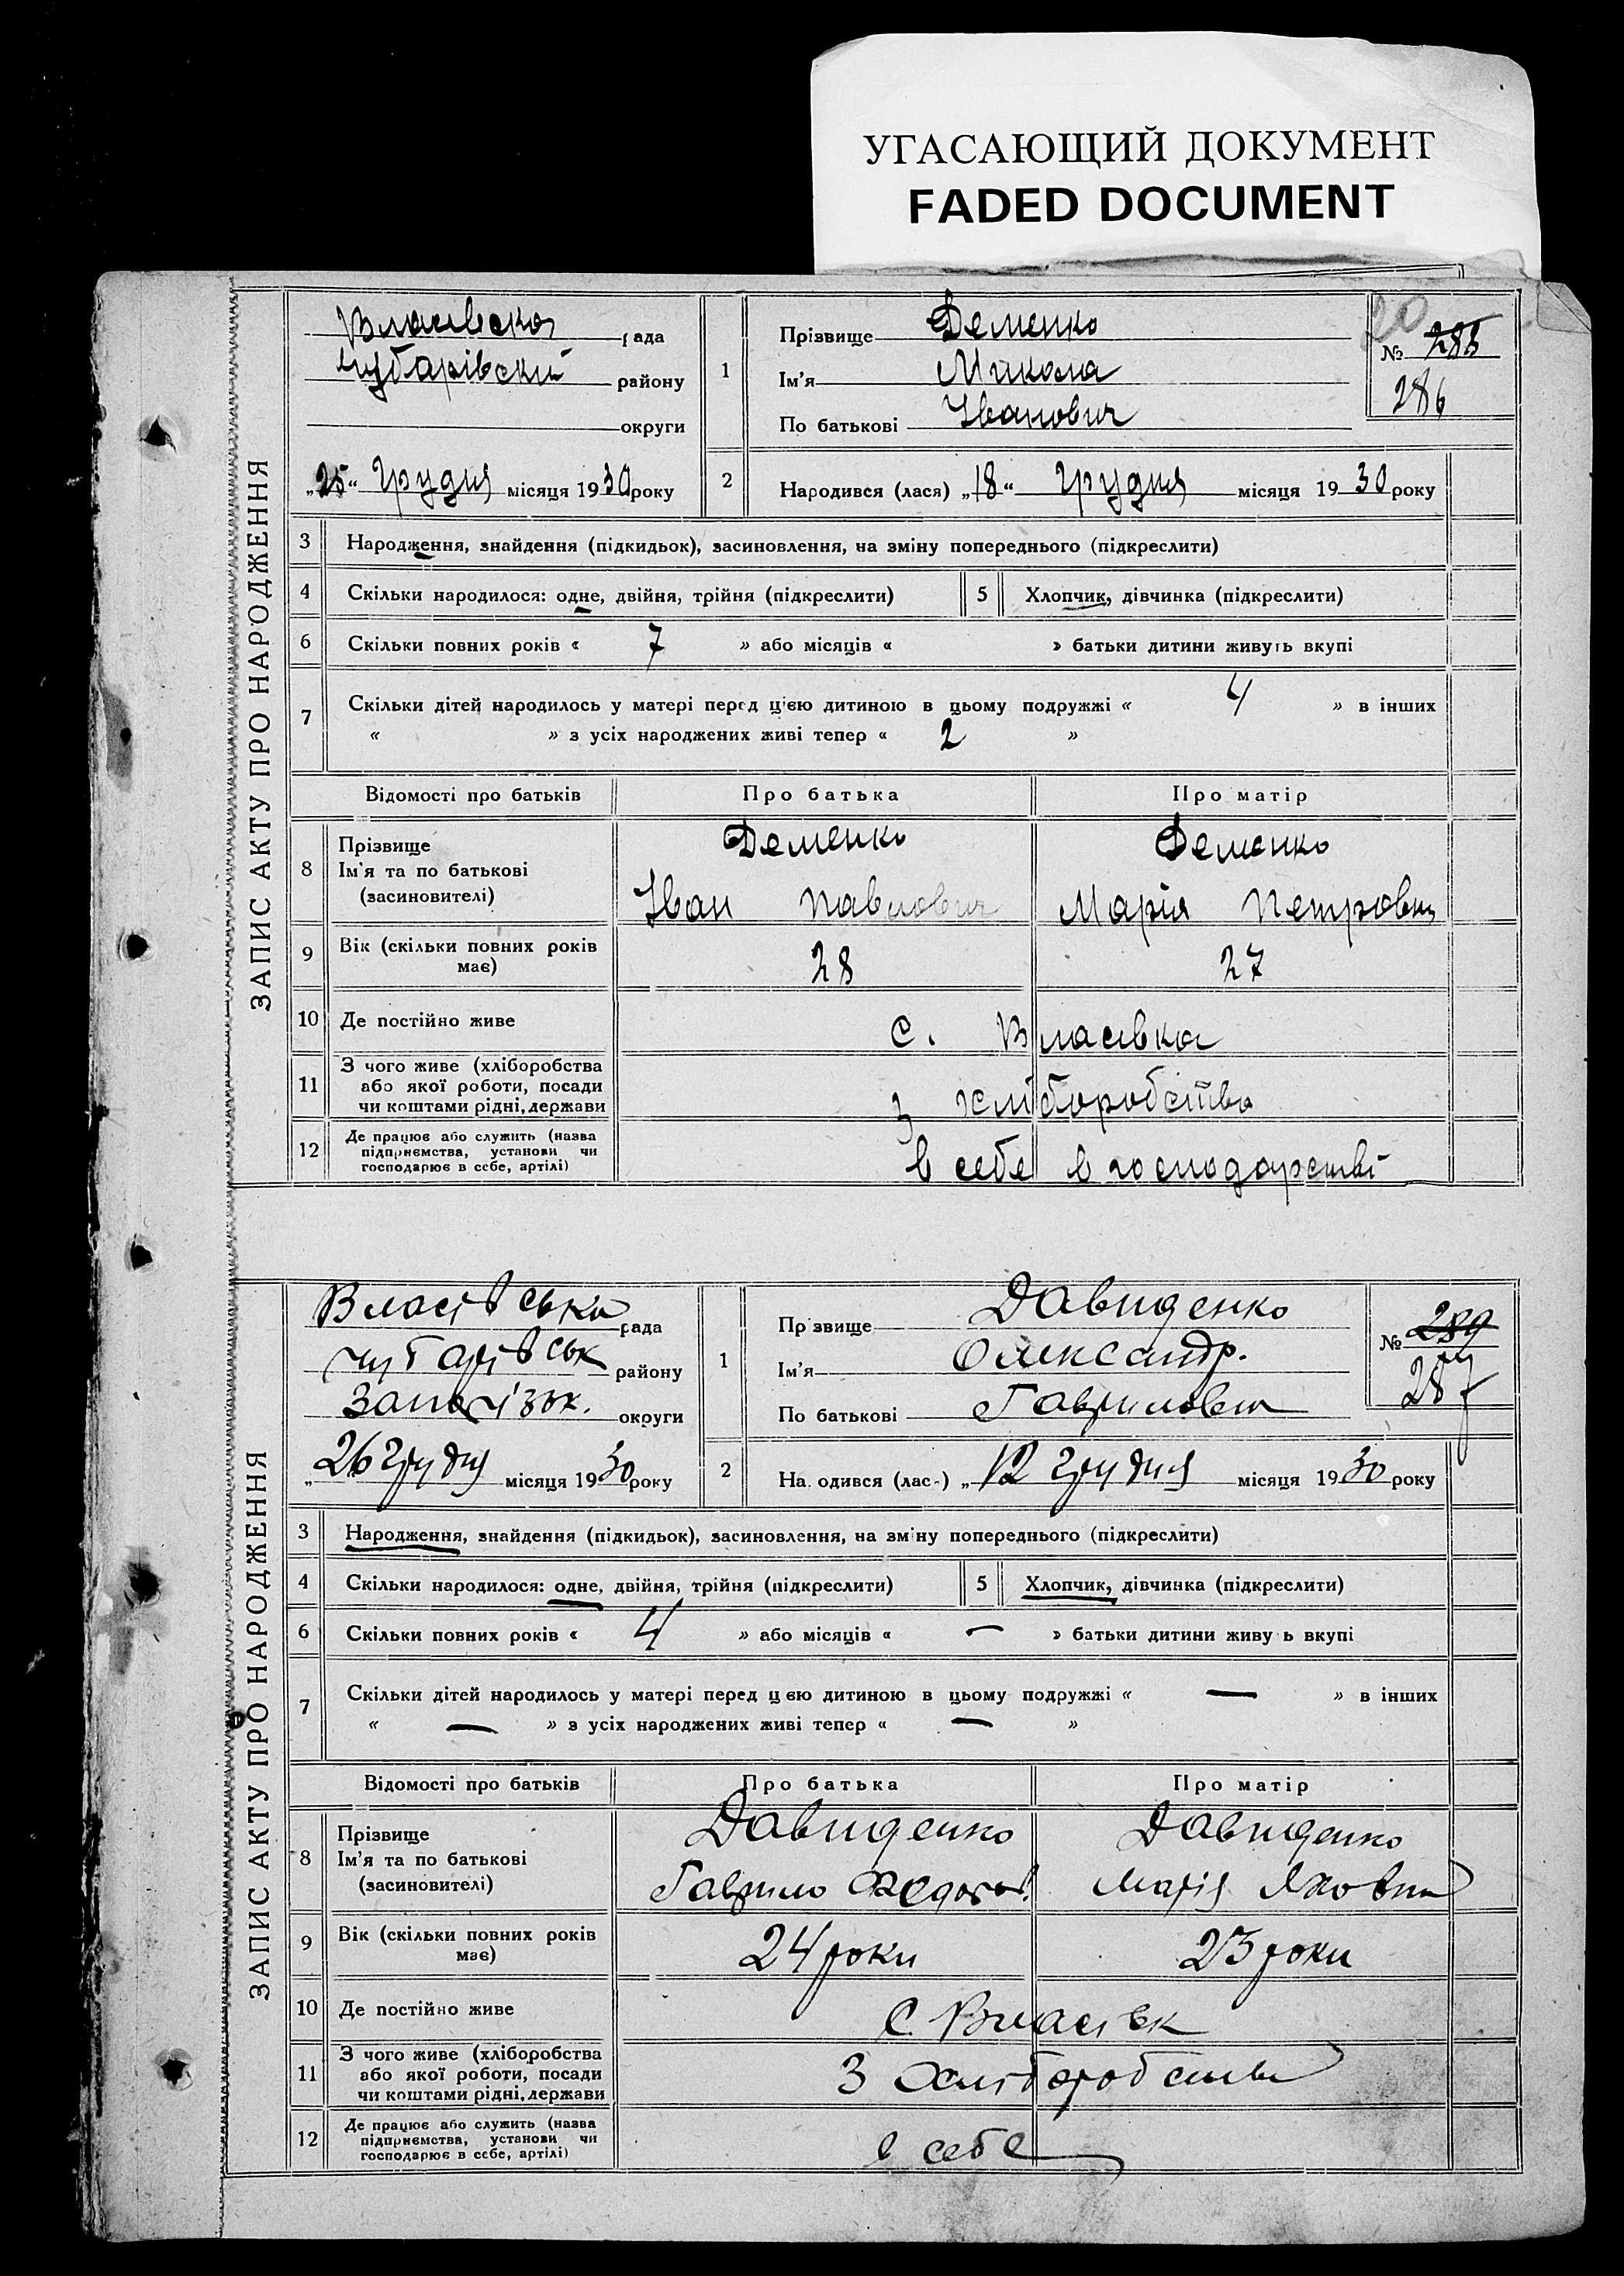 УГАСАЮЩИЙ ДОКУМЕНТ
FADED DOCUMENT
20
ЗАПИС АКТУ ПРО НАРОДЖЕННЯ
Власівска рада
Чубарівский району
округи
„25“ Грудня місяця 1930 року
1
Прізвище Деменко
Ім'я Микола
По батькові Іванович
№ 288
286
2
Народився (лася) „18“ Грудня місяця 1930 року
3 Народження, знайдення (підкидьок), засиновлення, на зміну попереднього (підкреслити)
4 Скільки народилося: одне, двійня, трійня (підкреслити) 5 Хлопчик, дівчинка (підкреслити)
6 Скільки повних років « 7 » або місяців « » батьки дитини живуть вкупі
7 Скільки дітей народилось у матері перед цією дитиною в цьому подружжі « 4 » в інших
« » з усіх народжених живі тепер « 2 »
Відомості про батьків Про батька Про матір
8 Прізвище Деменко Деменко
Ім'я та по батькові
(засновителі) Іван Павлович Марія Петровна
9 Вік (скільки повних років має) 28 27
10 Де постійно живе с. Власівка
11 З чого живе (хліборобства
або якої роботи, посади
чи коштами рідні, держави з хліборобства
12 Де працює або служить (назва
підприємства, установи чи
господарює в себе, артілі) в себе в господарстві
ЗАПИС АКТУ ПРО НАРОДЖЕННЯ
Власівська рада
Чубарівськ району
Запоріжж. округи
„26 Грудня місяця 1930 року
1
Прізвище Давиденко
Ім'я Олександр.
По батькові Гаврилович
№ 289
287
2
Народився (лась) „12 Грудня місяця 1930 року
3 Народження, знайдення (підкидьок), засиновлення, на зміну попереднього (підкреслити)
4 Скільки народилося: одне, двійня, трійня (підкреслити) 5 Хлопчик, дівчинка (підкреслити)
6 Скільки повних років « 4 » або місяців « — » батьки дитини живуть вкупі
7 Скільки дітей народилось у матері перед цією дитиною в цьому подружжі « — » в інших
« — » з усіх народжених живі тепер « — »
Відомості про батьків Про батька Про матір
8 Прізвище Давиденко Давиденко
Ім'я та по батькові
(засиновителі) Гаврило Федоров. Марія Яковна
9 Вік (скільки повних років має) 24 роки 23 роки
10 Де постійно живе С. Власівк
11 З чого живе (хліборобства
або якої роботи, посади
чи коштами рідні, держави З Хліборобства
12 Де працює або служить (назва
підприємства, установи чи
господарює в себе, артілі) в себе